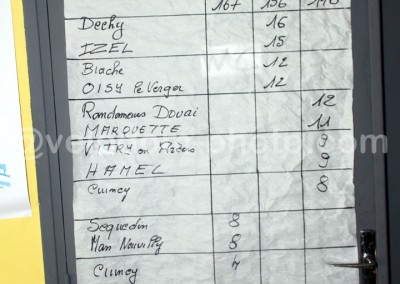 167 136 118
Dechy 16
IZEL 15
Biache 12
OISY Le Verger 12
Randonneurs Douai 12
MARQUETTE 11
VITRY en Artois 9
HAMEL 9
Cuincy 8
Sequedin 8
8
Cuincy 4